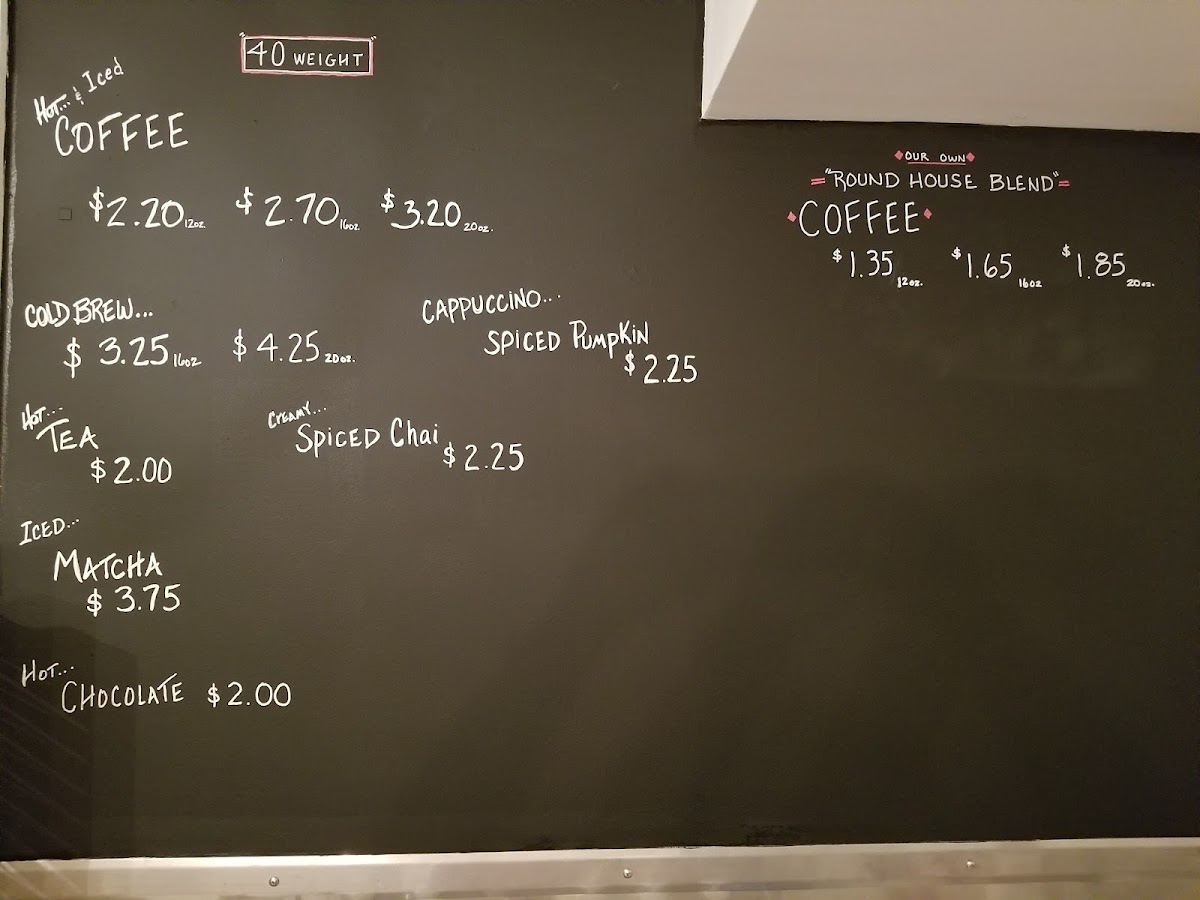 "40 WEIGHT"
HOT... & Iced
COFFEE
$2.20 12oz. $2.70 16oz. $3.20 20oz.
COLD BREW...
$3.25 16oz $4.25 20oz.
CAPPUCCINO...
SPICED PUMPKIN
$2.25
HOT...
TEA
$2.00
CREAMY...
SPICED Chai
$2.25
ICED...
MATCHA
$3.75
HOT...
CHOCOLATE $2.00
OUR OWN
"ROUND HOUSE BLEND"
COFFEE
$1.35 12oz. $1.65 16oz $1.85 20oz.